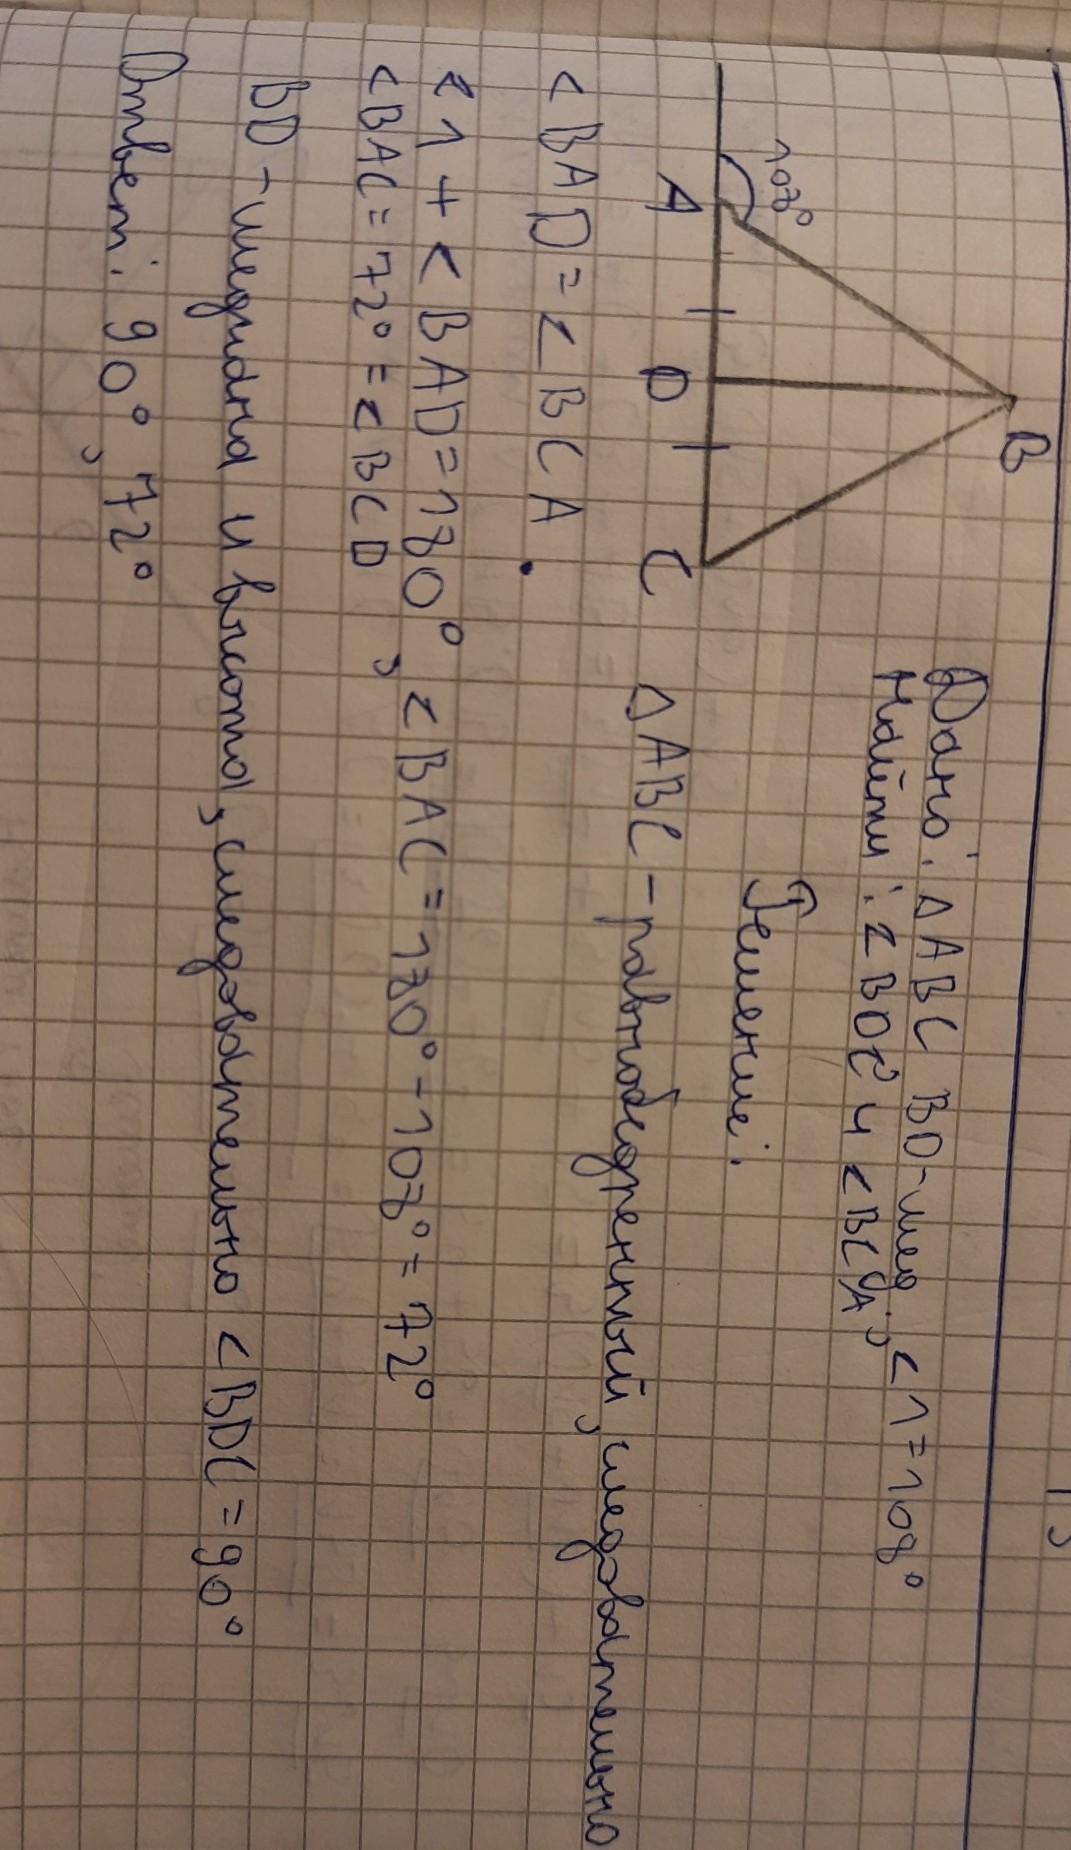 B
108°
A
D
C
Дано: △ABC BD-мед., <1=108°
Найти: ∠BDC и <BCA
Решение:
△ABC - равнобедренный, следовательно
<BAD=∠BCA.
∠1+<BAD=180°, <BAC=180°-108°=72°
<BAC=72°=∠BCD
BD-медиана и высота, следовательно <BDC=90°
Ответ: 90°, 72°